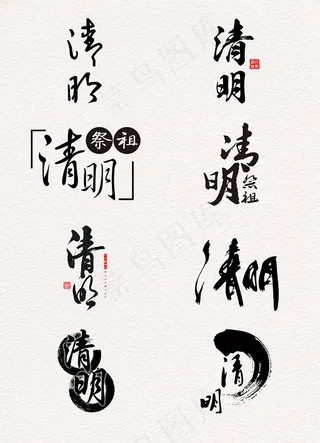 清明
清明
祭祖
清明
清明
祭祖
清明
清明
清明
清明